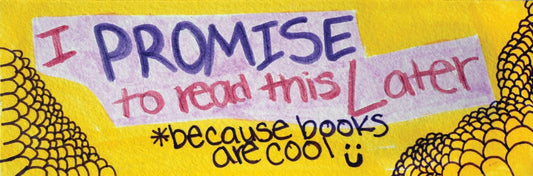 I PROMISE
to read this Later
*because books
are cool ü